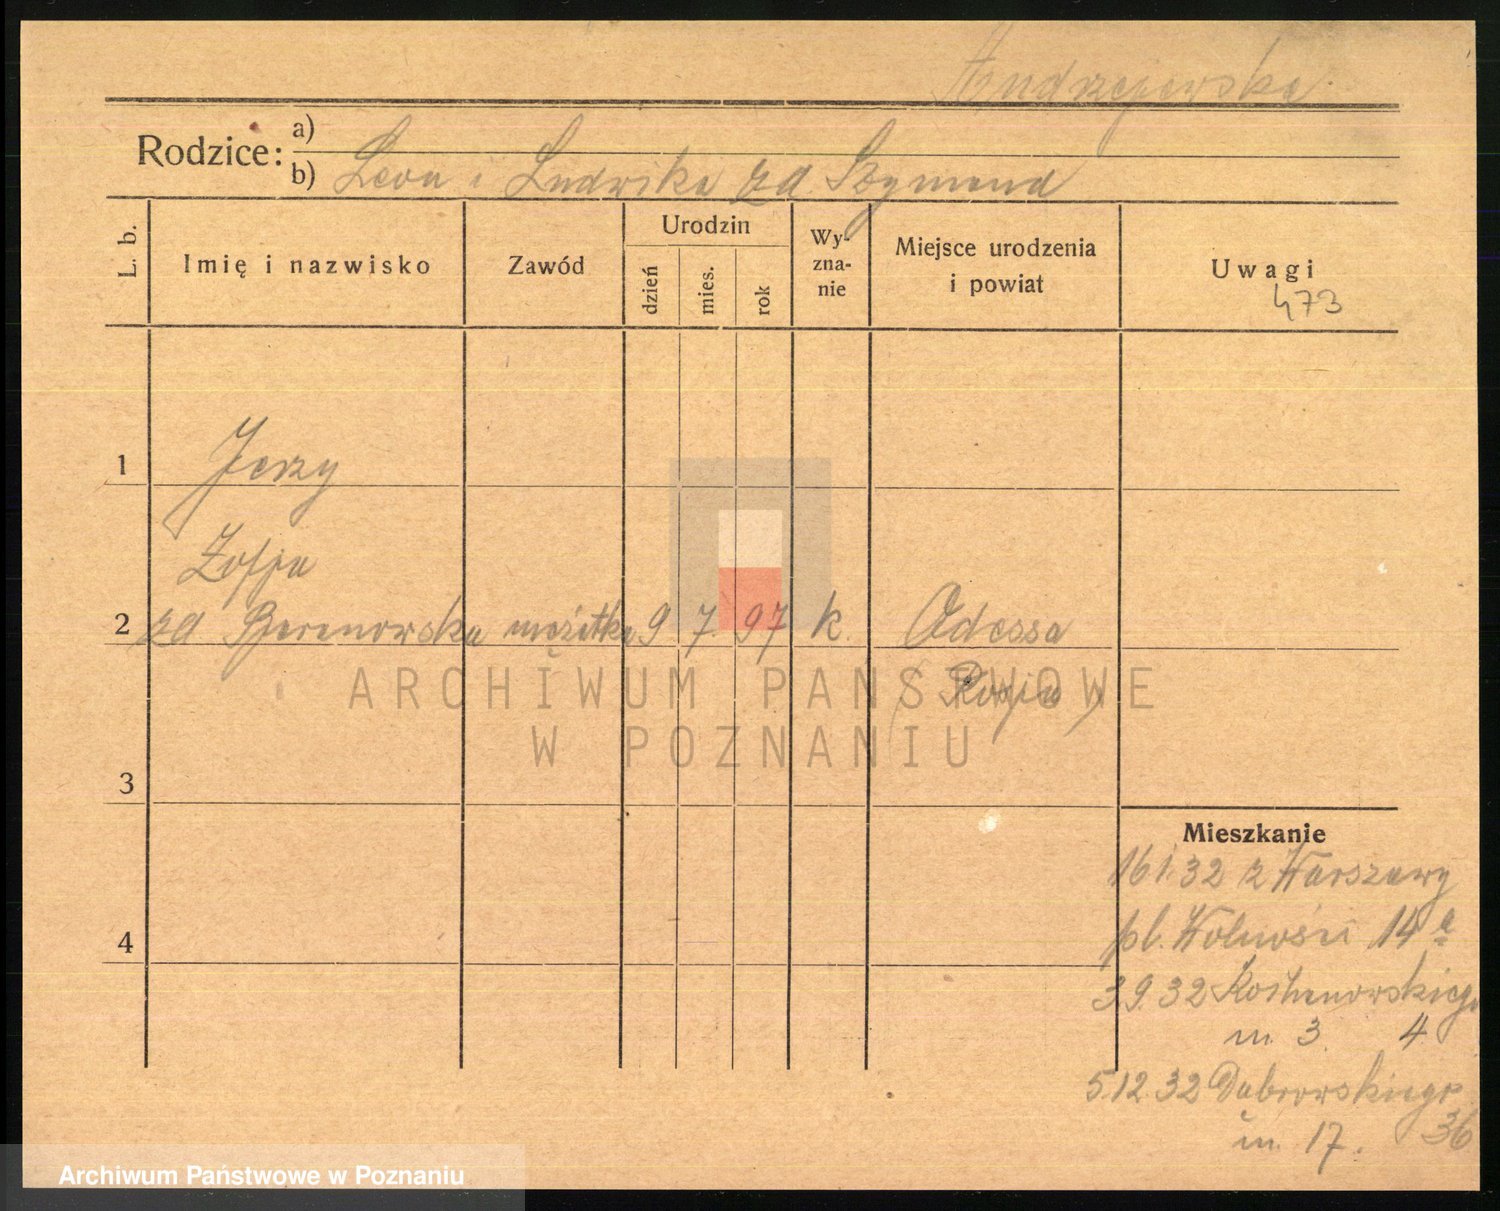 Andrzejewska
Rodzice: a)
b) Leon i Ludwika za Szymend
L. b.
Imię i nazwisko
Zawód
Urodzin
dzień
mies.
rok
Wy-
zna-
nie
Miejsce urodzenia
i powiat
Uwagi
473
1 Jerzy
Zofja
2 za Berenowska mężatka 9 7. 97 k. Odessa
(Rosja)
ARCHIWUM PAŃSTWOWE
W POZNANIU
3
Mieszkanie
16 1. 32 z Warszawy
4
pl. Wolności 14 a
3.9.32
m. 3. 4
5.12.32 Dąbrowskiego
m. 17. 36
Archiwum Państwowe w Poznaniu